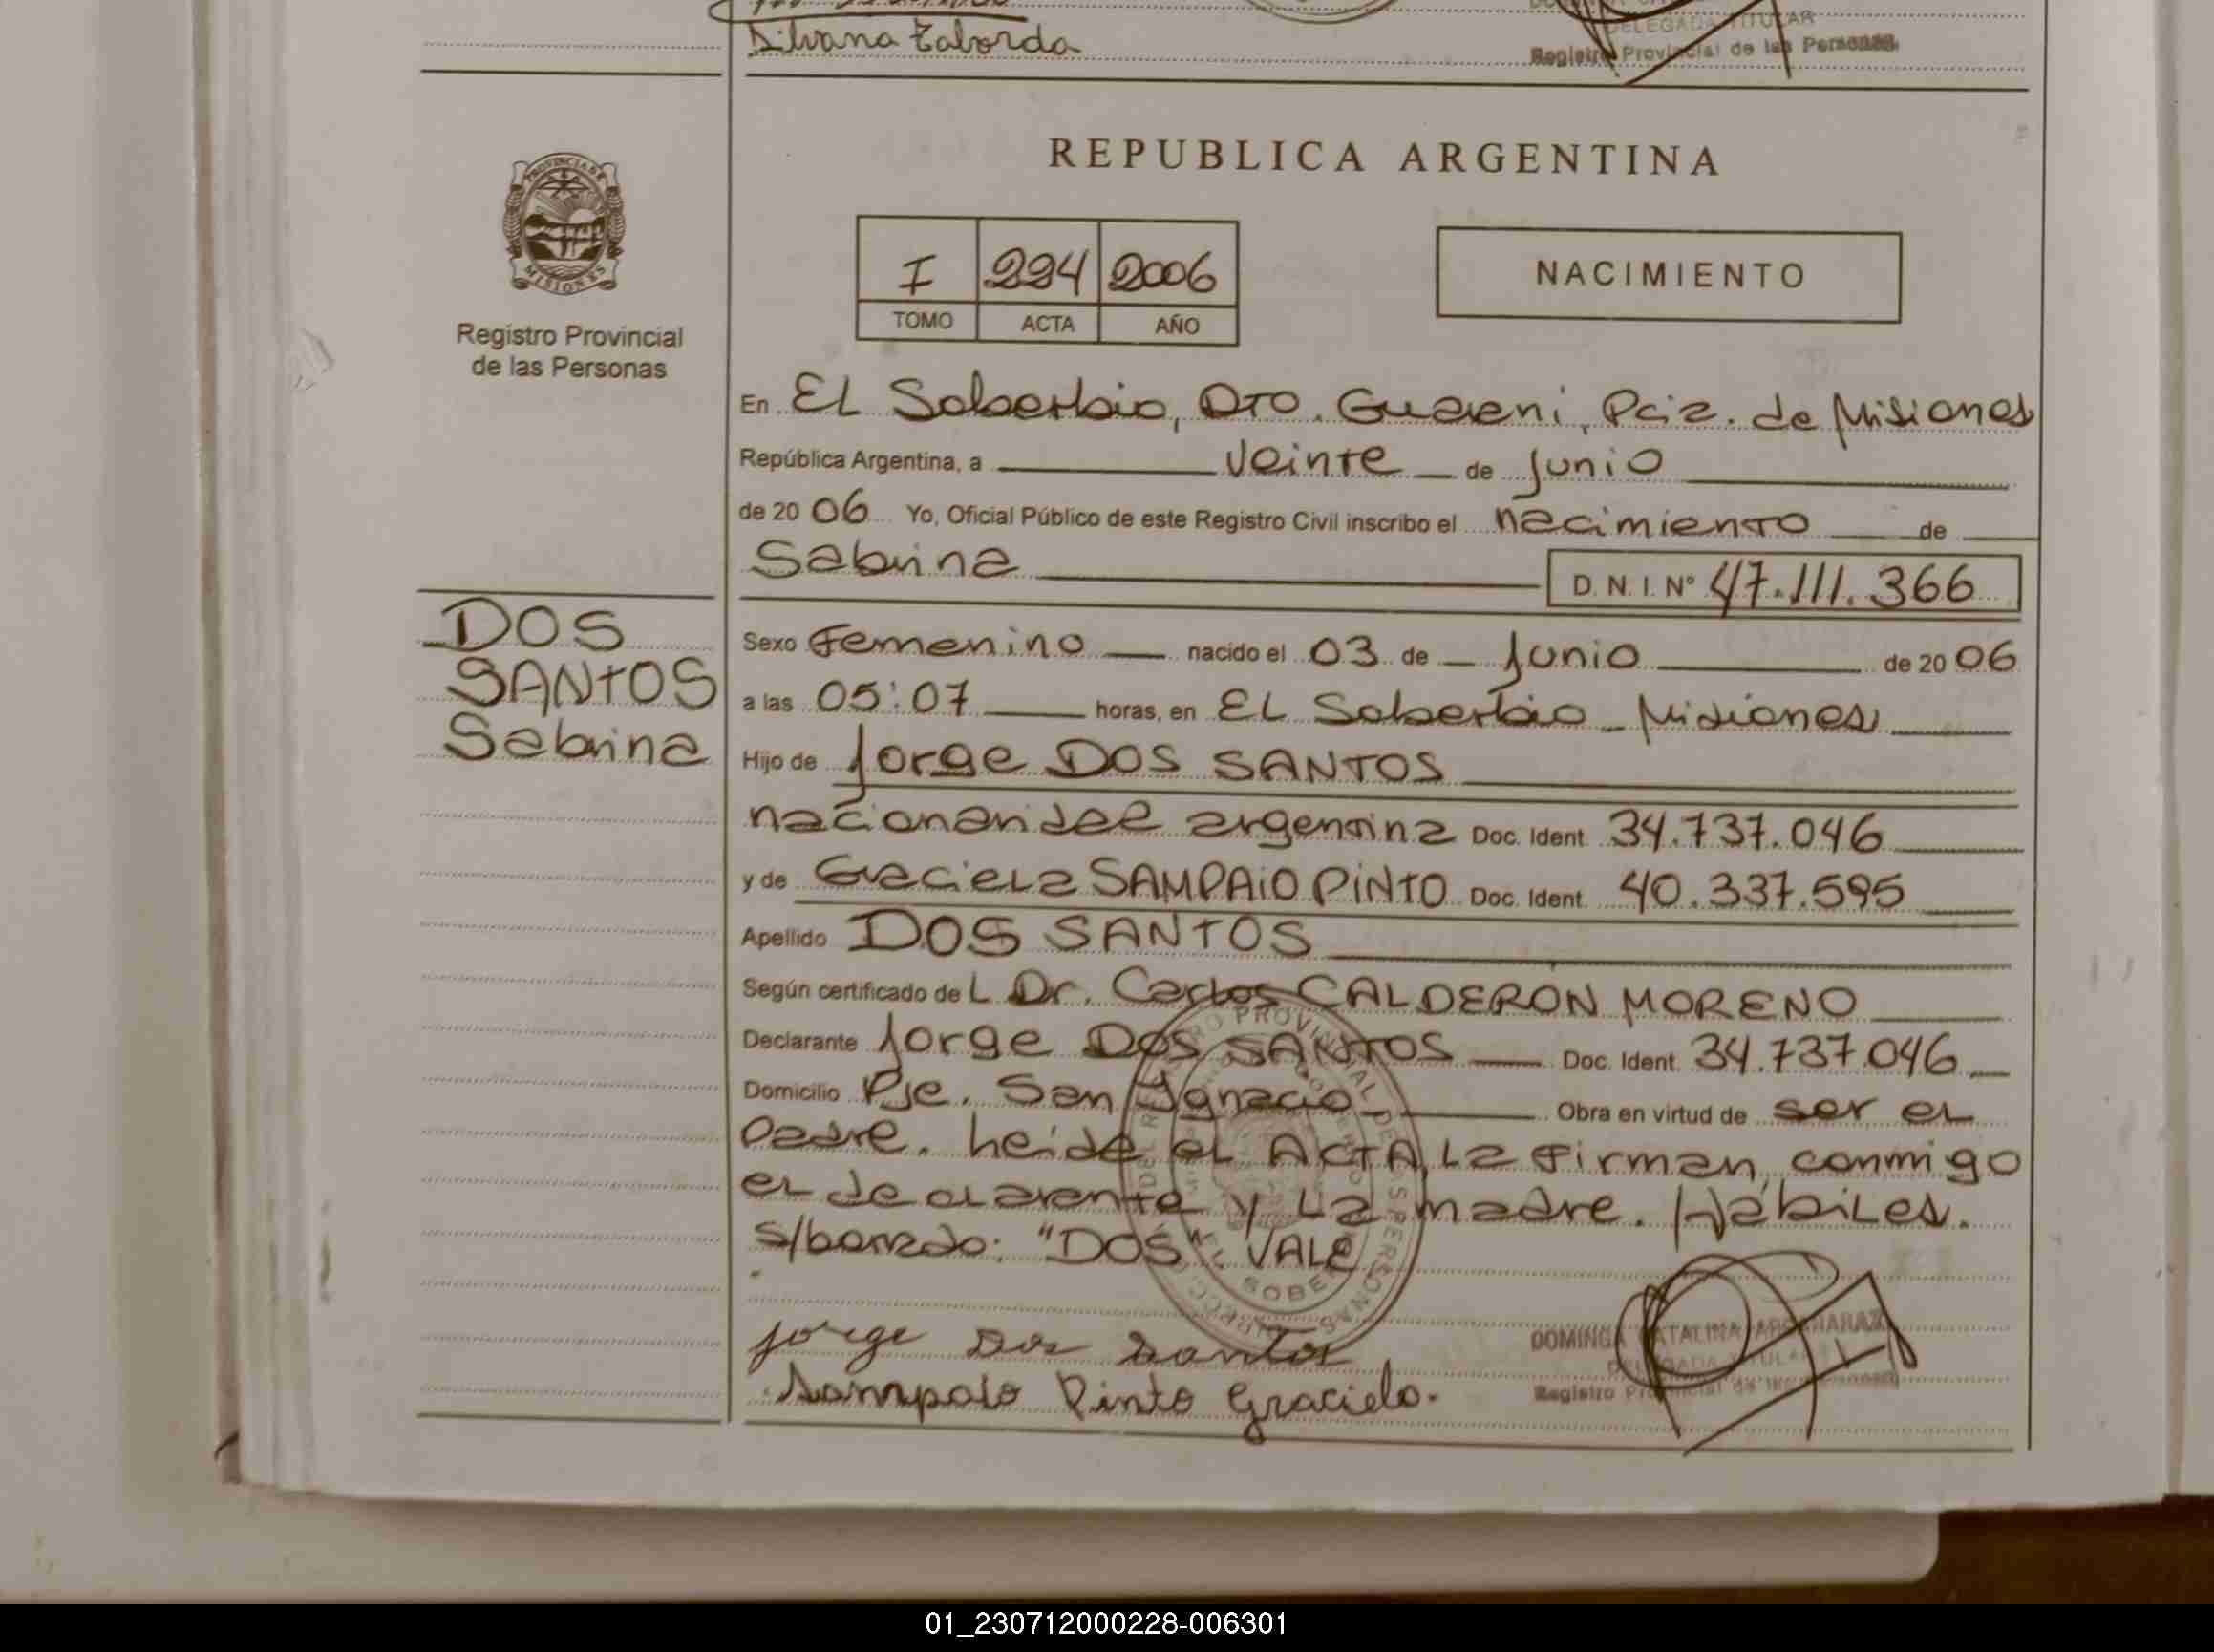 Silvana Taborda
DELEGADA TITULAR
Registro Provincial de las Personas
PROVINCIA DE
MISIONES
Registro Provincial
de las Personas
REPUBLICA ARGENTINA
I 294 2006
TOMO ACTA AÑO
NACIMIENTO
En EL Soberbio, DTO. Guarani, Pcia. de Misiones
República Argentina, a veinte de Junio
de 20 06 Yo, Oficial Público de este Registro Civil inscribo el nacimiento de
Sabrina D. N. I. Nº 47.111.366
DOS
SANTOS
Sabrina
Sexo Femenino nacido el 03 de Junio de 20 06
a las 05:07 horas, en EL Soberbio - Misiones
Hijo de Jorge DOS SANTOS
nacionalidad argentina Doc. Ident. 34.737.046
y de Graciela SAMPAIO PINTO Doc. Ident. 40.337.595
Apellido DOS SANTOS
Según certificado de L Dr. Carlos CALDERON MORENO
Declarante Jorge DOS SANTOS Doc. Ident. 34.737.046
Domicilio Pje. San Ignacio Obra en virtud de ser el
Padre. Leida el ACTA, La firman, conmigo
el declarante y La madre. Hábiles.
s/borrado: "DOS". VALE
Jorge Dos Santos
Sampaio Pinto Graciela.
DOMINGA CATALINA
DELEGADA TITULAR
Registro Provincial de las Personas
01_230712000228-006301